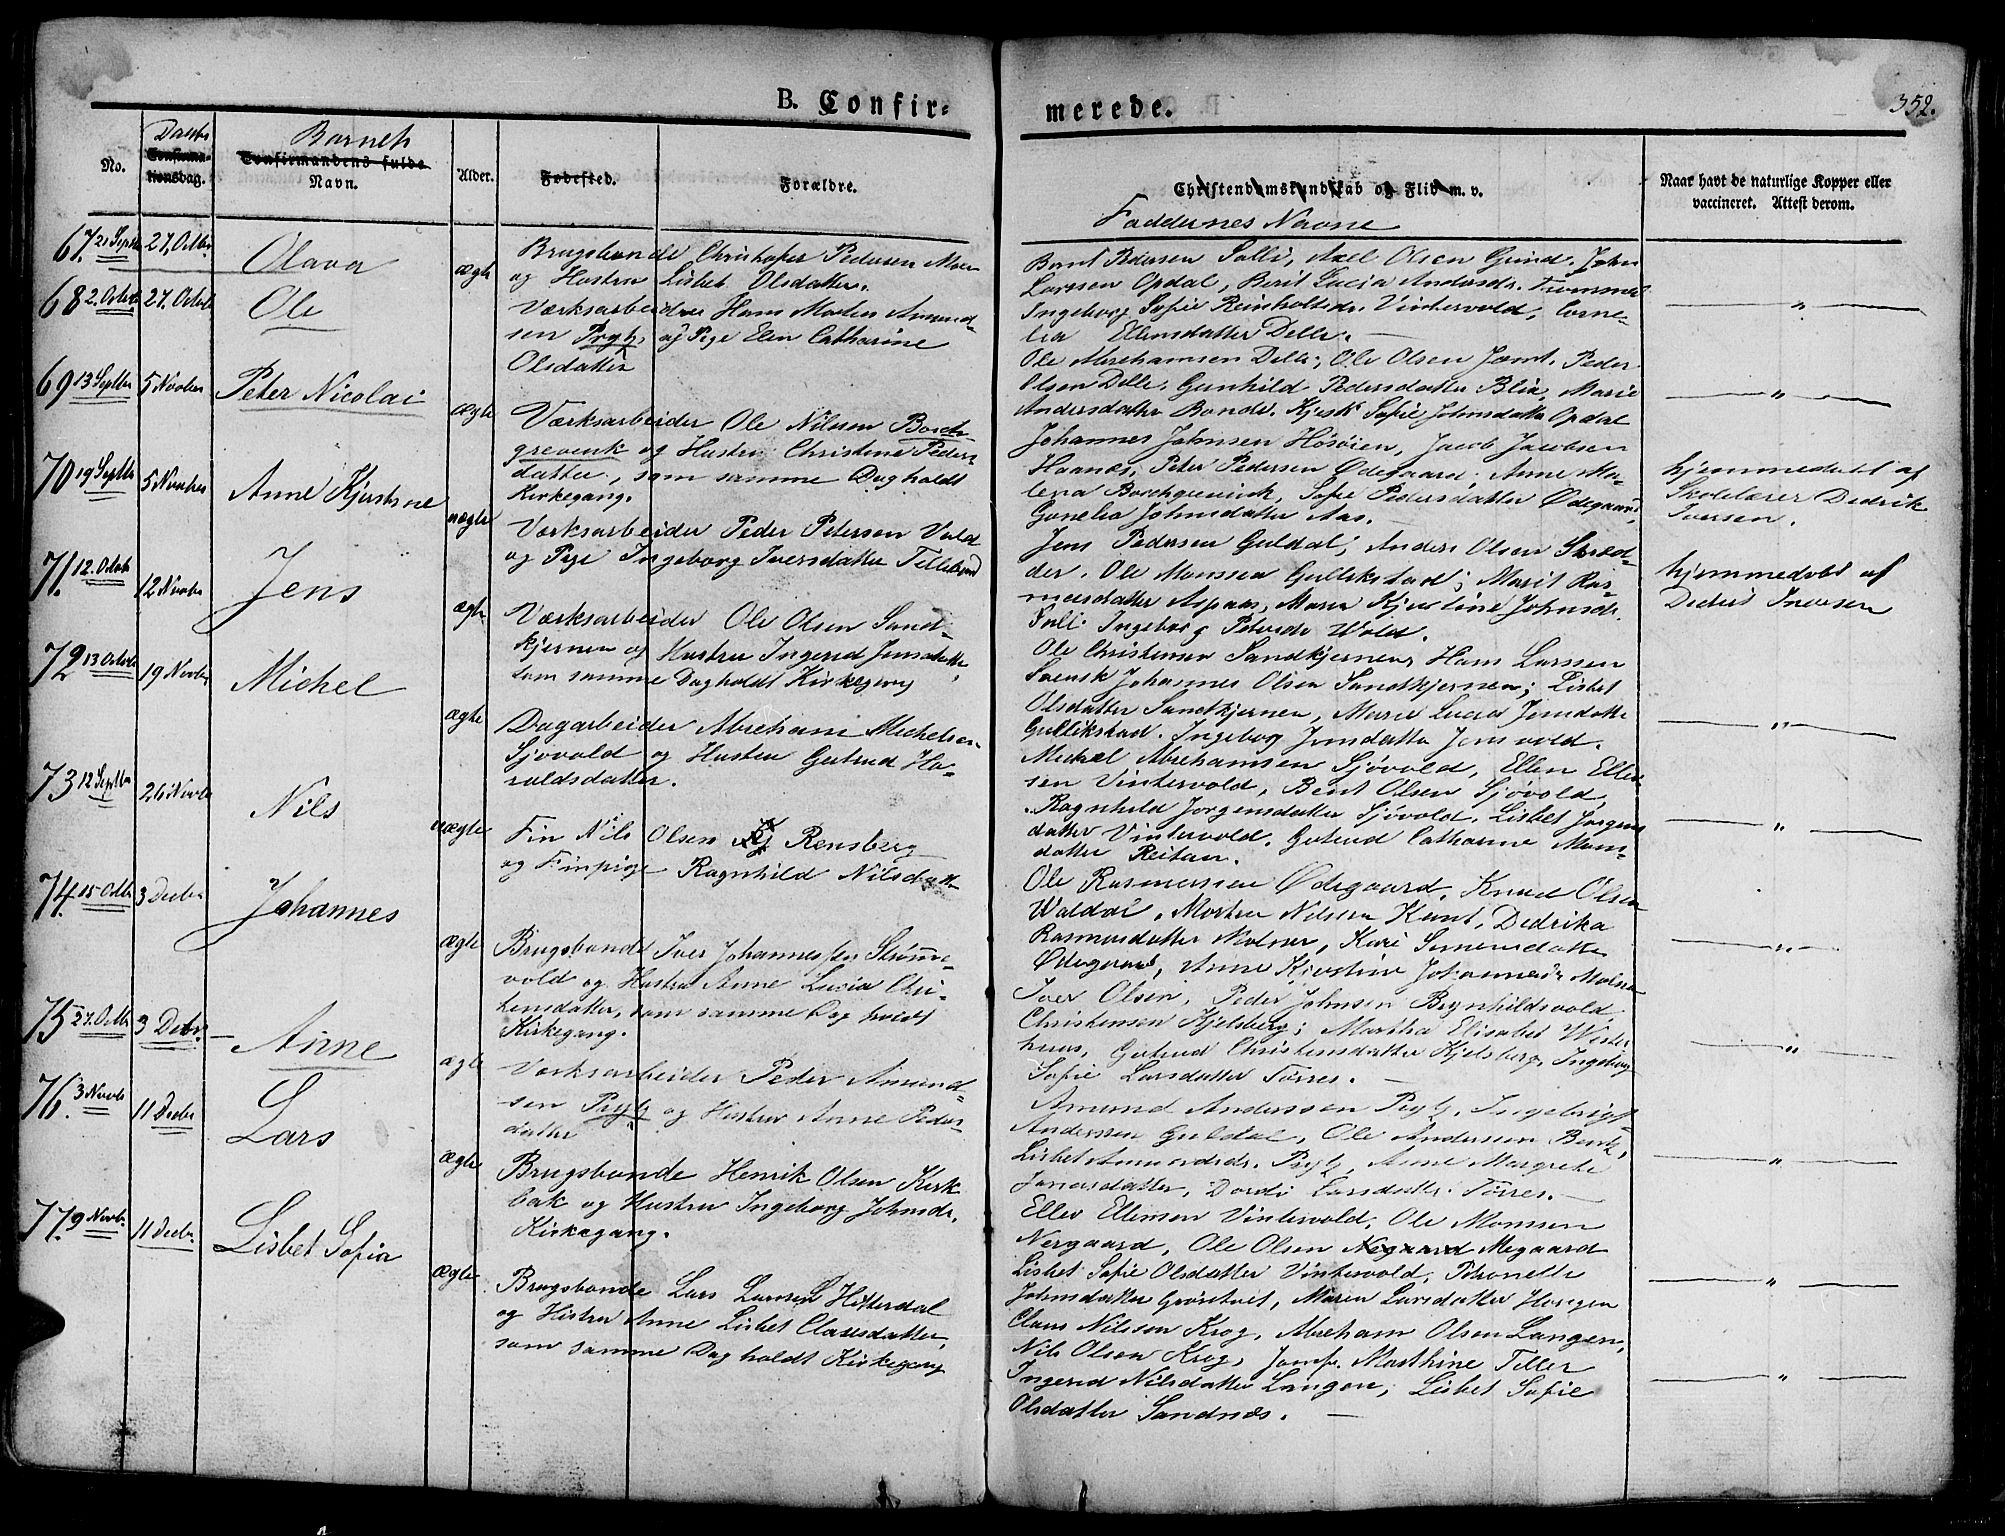 B. Confir-
merede.
352.
No.
Daabs
Confirma-
tionsdag.
Barnets
Confirmandens fulde
Navn.
Alder.
Fødested.
Forældre.
Christendomskundskab og Flid m. v.
Faddernes Navne
Naar havt de naturlige Kopper eller
vaccineret. Attest derom.
67. 21 Septbr 27. Octbr. Olava
ægte Brugsbonde Christopher Pedersen Moen
og Hustru Lisbet Olsdatter.
Bernt Pedersen Solli, Axel Olsen Grind, John
Larssen Opdal, Berit Lucia Andersdr. Trommel
68 2. Octob 27. Octob Ole
Værksarbeider Hans Morten Amund-
sen Prytz, og Pige Elen Catharine
Olsdatter
Ingeborg Sofie Reinholtsdr. Vintervold, Corne-
lia Ellensdatter Delle. —
Ole Abrehamsen Delle, Ole Olsen Jæmt. Peder
Olsen Delle. Gunhild Pedersdatter Blia, Marie
Andersdatter Bonde. Kjersti Sofie Johnsdatter Opdal
69 13 Septbr 5 Novber Peter Nicolai
ægte Værksarbeider Ole Nilsen Borch-
grevink og Hustru Christine Peders-
datter, som samme Dag holdt
Kirkegang.
Johannes Johnsen Høsøien, Jacob Jacobsen
Haanes, Peter Pedersen Ødegaard, Anne Ma-
lena Borchgrevink, Sofie Pedersdatter Ødegaard,
Gonelia Johnsdatter Aas. —
70 19 Septbr 5 Novbr Anne Kjerstine
uægte Værksarbeider Peder Petersen Vold
og Pige Ingeborg Iversdatter
hjemmedøbt af
Skolelærer Dedrik
Iversen.
Jens Pedersen Guldal, Anders Olsen Skræd-
der. Ole Monssen Gullikstad; Marit Ras-
musdatter Aspaas, Maren Kjerstine Johnsdr.
Solli Ingeborg Petersdr Wold.
71. 12. Octob 12 Novbr Jens
ægte Værksarbeider Ole Olsen Sand-
kjernen og Hustru Ingerid Jensdatter,
som samme Dag holdt Kirkegang
hjemmedøbt af
Dedrik Iversen
Ole Christensen Sandkjernen, Hans Larssen
Svensk Johannes Olsen Sandkjernen; Lisbet
Olsdatter Sandkjernen, Marie Lucia Jonsdatter
Gullikstad. Ingeborg Jonsdatter Jensvold.
72 13 Octob 19 Novbr Michel
ægte Dagarbeider Abreham Michelsen
Sjøvold og Hustru Gutrud Ha-
raldsdatter.
Michel Abrehamsen Sjøvold, Ellen Ellen-
sen Vintervold, Bent Olsen Sjøvold,
Ragnhild Jørgensdatter Sjøvold. Lisbet Jørgens
datter Vintervold. Gutrud Catharine Mons-
datter Reitan.
73 12 Septbr 26 Novbr Nils
uægte Fin Nils Olsen Rensberg
og Finpige Ragnhild Nilsdatter
Ole Rasmussen Ødegaard. Knud Olsen
Waldal, Morten Nilssen Kant, Dedrika
Rasmusdatter Molner, Kari Simensdatter
Ødegaard, Anne Kjerstine Johannesdr Molner
74. 15 Octbr 3 Decbr Johannes
ægte Brugsbonde Iver Johannessen Strømme-
vold og Hustru Anne Lucia Chri-
stensdatter, som samme Dag holdt
Kirkegang.
Iver Olsen, Peder Johnsen Brynhildsvold
Christensen Kjelsberg; Martha Elisabet Wester
huus, Gutrud Christensdatter Kjelsberg, Ingeborg
Sofie Larsdatter Tørres. —
75 27. Octbr 3 Debr. Anne
ægte Værksarbeider Peder Amund-
sen Prytz og Hustru Anne Peders-
datter
Amund Anderssen Prytz, Ingebrigt
Anderssen Guldal, Ole Anderssen Bentz,
Lisbet Amundsdr. Prytz, Anne Margrete
Jonasdatter, Dordi Larsdatter Tørres. —
76. 3 Novbr 11 Decbr Lars
ægte Brugsbonde Henrik Olsen Kirk
bak og Hustru Ingeborg Johnsdr.
Kirkegang.
Ellev Ellensen Vintervold, Ole Monssen
Nergaard, Ole Olsen Negaard Megaard
Lisbet Sofie Olsdatter Vintervold, Petronelle
Johnsdatter Grøntvet, Maren Larsdatter Haugen
77. 9 Novbr. 11 Decbr. Lisbet Sofia
ægte Brugsbonde Lars Larssen Hitterdal
og Hustru Anne Lisbet Clausdatter,
som samme Dag holdt Kirkegang
Claus Nilssen Krog, Abreham Olsen Langen,
Nils Olsen Krog, Jomfr. Marthine Teller
Ingerid Nilsdatter Langen, Lisbet Sofie
Olsdatter Sandnæs. —